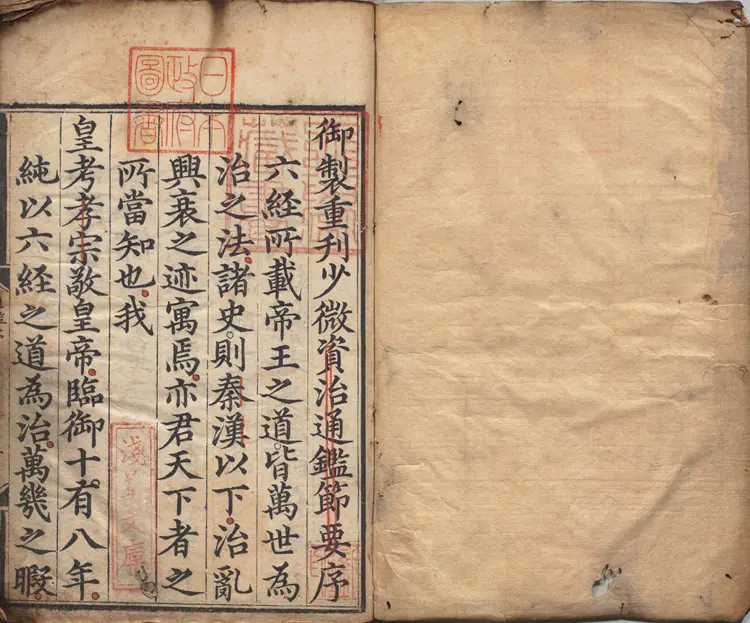 御製重刊少微資治通鑑節要序
六経所載帝王之道皆萬世為
治之法諸史則秦漢以下治亂
興衰之迹寓焉亦君天下者之
所當知也我
皇考孝宗敬皇帝臨御十有八年
純以六經之道為治萬幾之暇
日本
政府
圖書
淺草文庫